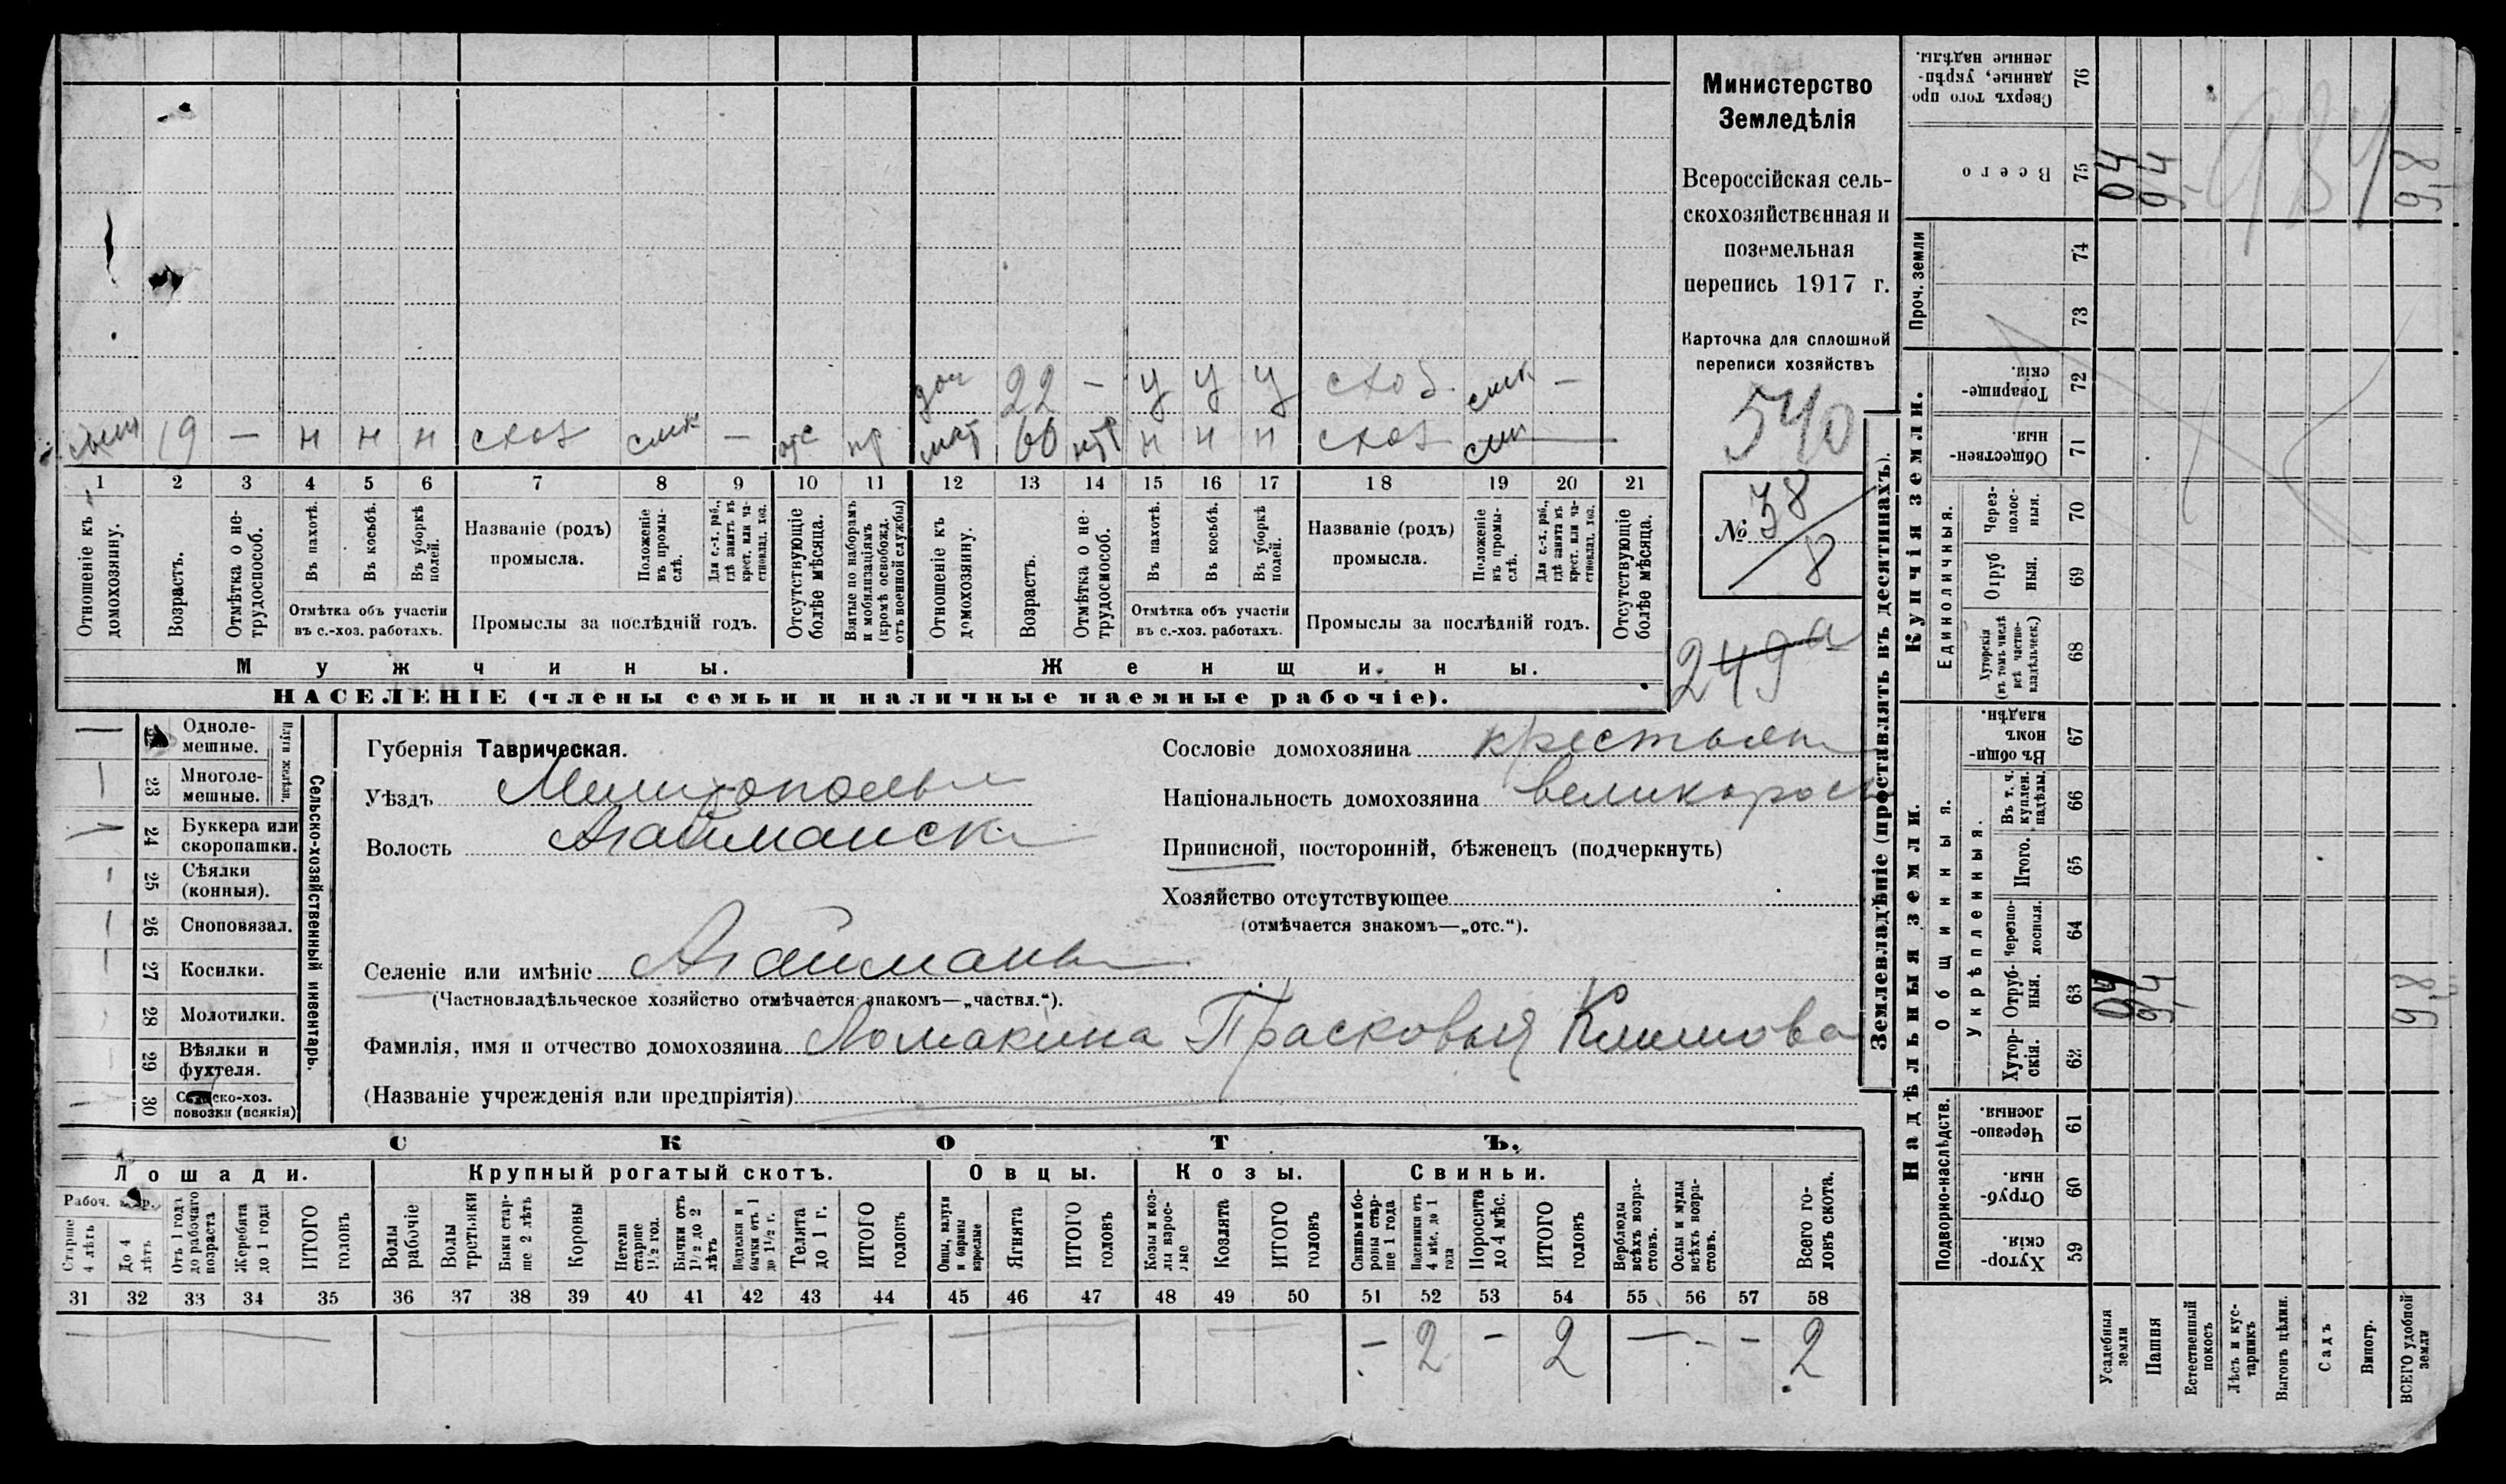 Министерство
Земледѣлія
Всероссійская сель-
скохозяйственная и
поземельная
перепись 1917 г.
Карточка для сплошной
переписи хозяйствъ
540
№ 38/8
249а
доч 22 — у у у схоз. смк —
сын 19 — н н н схоз смк — отс пр мат 60 нтр н н н схоз смк —
1 2 3 4 5 6 7 8 9 10 11 12 13 14 15 16 17 18 19 20 21
Отношеніе къ домохозяину.
Возрастъ.
Отмѣтка о не-трудоспособ.
Въ пахотѣ.
Въ косьбѣ.
Въ уборкѣ полей.
Отмѣтка объ участіи
въ с.-хоз. работахъ.
Названіе (родъ)
промысла.
Положеніе въ промы-слѣ.
Для с.-х. раб., гдѣ занятъ въ крест. или ча-стновлад. хоз.
Промыслы за послѣдній годъ.
Отсутствующіе болѣе мѣсяца.
Взятые по наборамъ и мобилизаціямъ (кромѣ освобожд. отъ военной службы)
Отношеніе къ домохозяину.
Возрастъ.
Отмѣтка о не-трудоспособ.
Въ пахотѣ.
Въ косьбѣ.
Въ уборкѣ полей.
Отмѣтка объ участіи
въ с.-хоз. работахъ.
Названіе (родъ)
промысла.
Положеніе въ промы-слѣ.
Для с.-х. раб., гдѣ занята въ крест. или ча-стновлад. хоз.
Промыслы за послѣдній годъ.
Отсутствующіе болѣе мѣсяца.
Мужчины.
Женщины.
НАСЕЛЕНІЕ (члены семьи и наличные наемные рабочіе).
Сельско-хозяйственный инвентарь.
Плуги желѣзн.
22 Однолемешные. —
23 Многолемешные. —
24 Буккера или скоропашки. —
25 Сѣялки (конныя). —
26 Сноповязал. —
27 Косилки. —
28 Молотилки. —
29 Вѣялки и фухтеля. —
30 Сельско-хоз. повозки (всякія) —
Губернія Таврическая.
Уѣздъ Мелитопольск
Волость Агайманск
Селеніе или имѣніе Агайманы
(Частновладѣльческое хозяйство отмѣчается знакомъ—„частвл.“).
Фамилія, имя и отчество домохозяина Ломакина Прасковья Климова
(Названіе учрежденія или предпріятія)
Сословіе домохозяина крестьян
Національность домохозяина великорос
Приписной, посторонній, бѣженецъ (подчеркнуть)
Хозяйство отсутствующее
(отмѣчается знакомъ—„отс.“).
СКОТЪ.
Лошади. Крупный рогатый скотъ. Овцы. Козы. Свиньи.
Рабоч. возр.
Старше 4 лѣтъ
До 4 лѣтъ
Отъ 1 года до рабочаго возраста
Жеребята до 1 года
ИТОГО головъ
Волы рабочіе
Волы третьяки
Быки стар-ше 2 лѣтъ
Коровы
Нетели старше 1½ год.
Бычки отъ 1½ до 2 лѣтъ
Подтелки и бычки отъ 1 до 1½ г.
Телята до 1 г.
ИТОГО головъ
Овцы, валухи и бараны взрослые
Ягнята
ИТОГО головъ
Козы и коз-лы взрос-лые
Козлята
ИТОГО головъ
Свиньи и бо-ровы стар-ше 1 года
Подсвинки отъ 4 мѣс. до 1 года
Поросята до 4 мѣс.
ИТОГО головъ
Верблюды всѣхъ возра-стовъ.
Ослы и мулы всѣхъ возра-стовъ.
Всего го-ловъ скота.
31 32 33 34 35 36 37 38 39 40 41 42 43 44 45 46 47 48 49 50 51 52 53 54 55 56 57 58
— 2 — 2 — - — 2
Землевладѣніе (проставлять въ десятинахъ).
Надѣльныя земли.
Купчія земли.
Проч. земли
Подворно-наслѣдств.
Общинныя.
Укрѣпленныя.
Единоличныя.
Сверхъ того про данные, укрѣп-ленные надѣлы. 76
Всего 75 04 94 98
74
73
Товарище-скія. 72
Обществен-ныя. 71
Через-полос-ныя. 70
Отруб ныя. 69
Хуторскія (въ томъ числѣ всѣ частно-владѣльческ.) 68
Въ общи-номъ владѣн. 67
Въ т. ч. куплен. надѣлы. 66
Итого. 65
Черезпо-лосныя. 64
Отруб-ныя. 63 04 94 98
Хутор-скія. 62
Черезпо-лосныя. 61
Отруб-ныя. 60
Хутор-скія. 59
Усадебныя земли
Пашня
Естественный покосъ
Лѣсъ и кус-тарникъ
Выгонъ цѣлин.
Садъ
Виногр.
ВСЕГО удобной земли
984